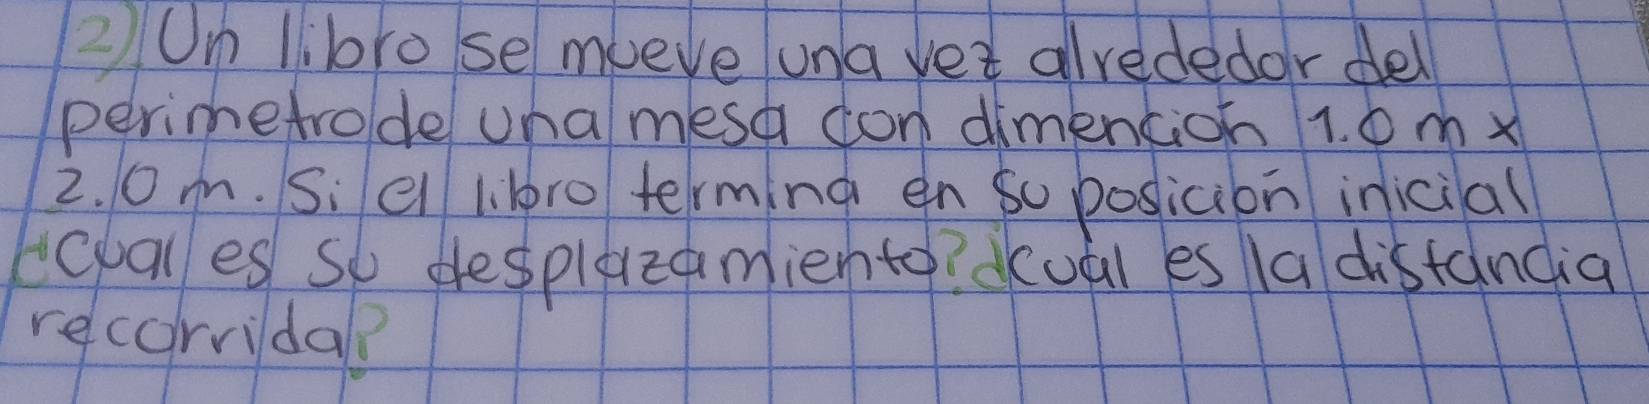 2) Un libro se mueve una vez alrededor del
perimetro de una mesa con dimención 1.0 m x
2.0 m. Si el libro termina en su posición inicial
¿cual es su desplazamiento? ¿cuál es la distancia
recorrida?